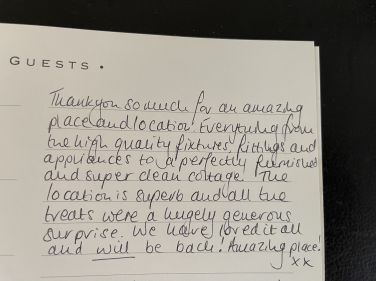 GUESTS •
Thankyou so much for an amazing
place and location! Everything from
the high quality fixtures, fittings and
appliances to a perfectly furnished
and super clean cottage! The
location is superb and all the
treats were a hugely generous
surprise. We have loved it all
and will be back! Amazing place!
xx